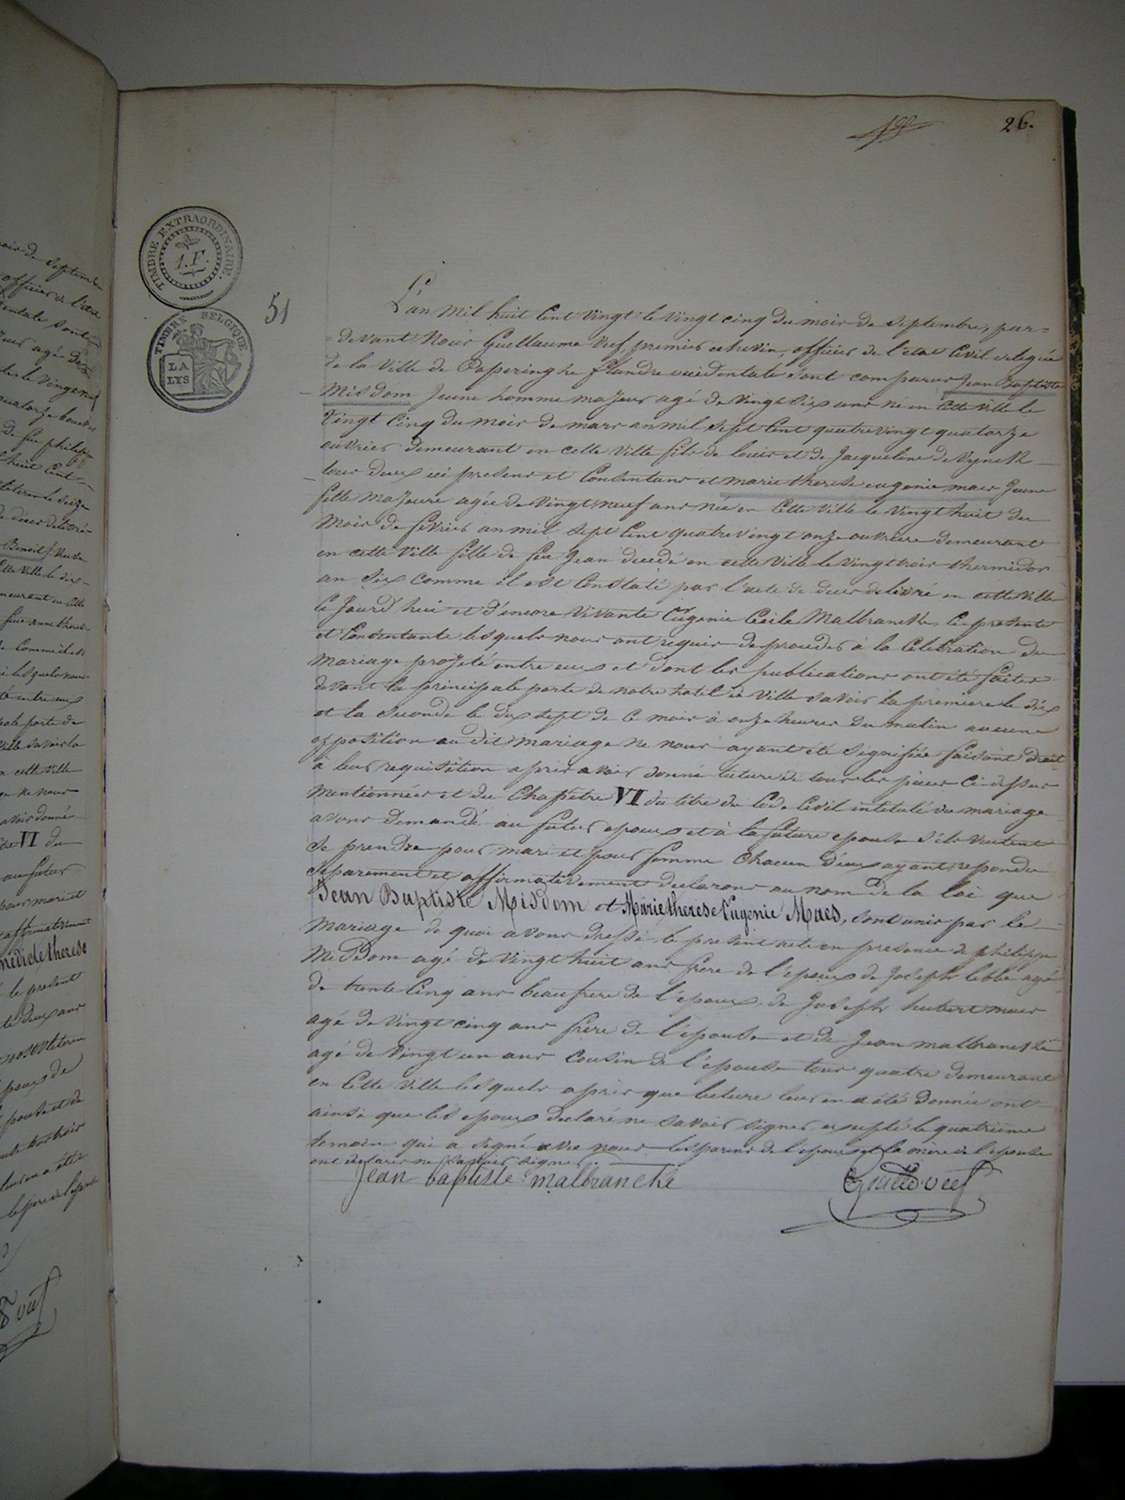 26.
TIMBRE EXTRAORDINAIRE.
1.F.
TIMBRE BELGIQUE
LA LYS
51
L'an mil huit Cent vingt le vingt cinq du mois de Septembre, par-
-devant Nous Guillaume Vuef premier echevin, officier de l'etat Civil delegué
de la Ville de Poperinghe flandre occidentale Sont comparus Jean Baptiste
Misdom Jeune homme majeur agé de vingt six ans né en Cette ville le
vingt Cinq du mois de mars an mil Sept Cent quatre vingt quatorze
ouvrier demeurant en cette Ville fils de louis et de Jacqueline de Vynck
tous deux ici presens et Consentans et marie therese eugenie maes Jeune
fille majeure agée de Vingt neuf ans née en Cette Ville le Vingt huit du
mois de fevrier an mil Sept Cent quatre vingt onze ouvriere demeurant
en cette Ville fille de feu Jean decedé en cette Ville le vingt trois thermidor
an Six comme il est Constaté par l'acte de deces delivré en cette Ville
le Jourd'hui et d'encore Vivante Eugenie Cecile Malbrancke Ci presente
et Consentante lesquels nous ont requis de proceder à la Celebration du
mariage projeté entre eux et dont les publications ont été faites
devant la principale porte de notre hotel de Ville Savoir la premiere le dix
et la Seconde le dix Sept de Ce mois à onze heures du matin aucune
opposition au dit mariage ne nous ayant été Signifiée faisant droit
à leur requisition apres avoir donné lecture de tous les pieces Ci dessus
mentionnées et du Chapitre VI du titre du Code Civil intitulé du mariage
avons demandé au futur epoux et à la future epouse S'ils veulent
Se prendre pour mari et pour femme Chacun d'eux ayant repondu
Separement et affirmativement declarons au nom de la loi que
Jean Baptiste Misdom et Marie therese Eugenie Maes, Sont unis par le
mariage de quoi avons dressé le present acte en presence de philippe
Misdom agé de Vingt huit ans frere de l'epoux de Joseph lebbe agé
de trente Cinq ans beau frere de l'epoux. de Joseph hubert maes
agé de Vingt cinq ans frere de l'epouse et de Jean malbrancke
agé de Vingt un ans Cousin de l'epouse tous quatre demeurant
en Cette Ville lesquels apres que lecture leur en a été donnée ont
ainsi que les epoux declaré ne Savoir Signer excepté le quatrieme
temoin qui a Signé avec nous les parens de l'epoux et la mere de l'epouse
ont declaré ne Savoir Signer
Jean baptiste malbrancke